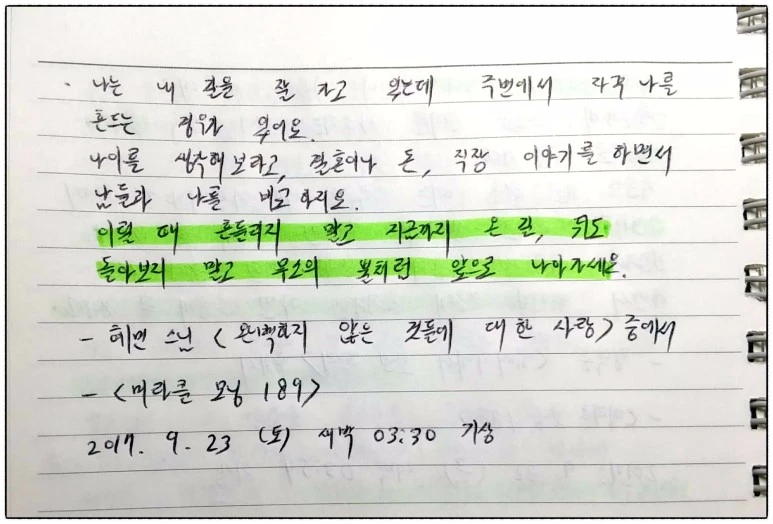 · 나는 내 길을 잘 가고 있는데 주변에서 자꾸 나를
흔드는 경우가 있어요.
나이를 생각해 보라고, 결혼이나 돈, 직장 이야기를 하면서
남들과 나를 비교하지요.
이럴 때 흔들리지 말고 지금까지 온 길, 뒤도
돌아보지 말고 무소의 뿔처럼 앞으로 나아가세요.
- 혜민 스님 <완벽하지 않은 것들에 대한 사랑> 중에서
- <미라클 모닝 189>
2017. 9. 23 (토) 새벽 03:30 기상